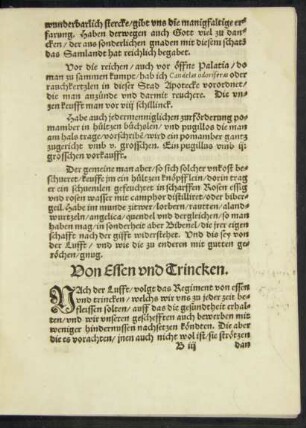 wunderbarlich stercke/gibt vns die manigfaltige er-
farung. Haben derwegen auch Gott viel zu dan-
cken/der aus sonderlichen gnaden mit diesem schatz
das Samlandt hat reichlich begabet.
Vor die reichen/auch vor öffne Palatia/do
man zu samen kumpt/hab ich Candelas odoriferas oder
rauchkertzlen in dieser Stad Apotecke vorordnet/
die man anzünde vnd darmit reuchere. Die vn-
zen keufft man vor vij schillinck.
Habe auch jedermenniglichen zur förderung po-
mamber in hültzen bücholen/vnd pugillos die man
am hals trage/vorschribē/wirt ein pomamber gantz
zugericht vmb v. gröschen. Ein pugillus vmb ij
gröschen vorkaufft.
Der gemeine man aber/so sich solcher vnkost be-
schweret/keuffe jm ein hültzen knöpfflein/dorin trag
er ein schuemlen gefeuchtet in scharffen Rosen essig
vnd rosen wasser mit camphor distilliret/oder biber-
geil. Habe im munde zitwer/lorbern/rautten/aland-
wurtzeln/angelica/quendel vnd dergleichen/so man
haben mag/in sonderheit aber Bibenel/die jrer eigen
schafft nach der gifft widerstehet. Vnd die sey von
der Lufft/vnd wie die zu enderen mit gutten ge-
röchen/gnug.
Von Essen vnd Trincken.
NAch der Lufft/volgt das Regiment von essen
vnd trincken/welchs wir vns zu jeder zeit be-
fleissen solten/auff das die gesundtheit erhal-
ten/vnd wir vnseren geschefften auch bewerben mit
weniger hindernussen nachsetzen köndten. Die aber
die es vorachten/jnen auch nicht wol ist/sie strötzen
B iij dan